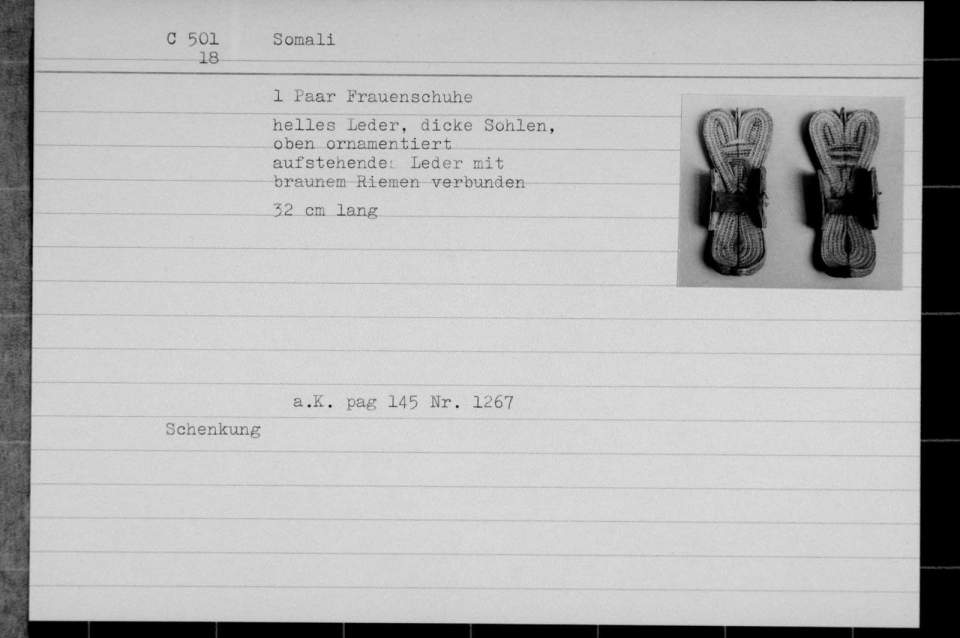 C 501 Somali
18
1 Paar Frauenschuhe
helles Leder, dicke Sohlen,
oben ornamentiert
aufstehende: Leder mit
braunem Riemen verbunden
32 cm lang
a.K. pag 145 Nr. 1267
Schenkung